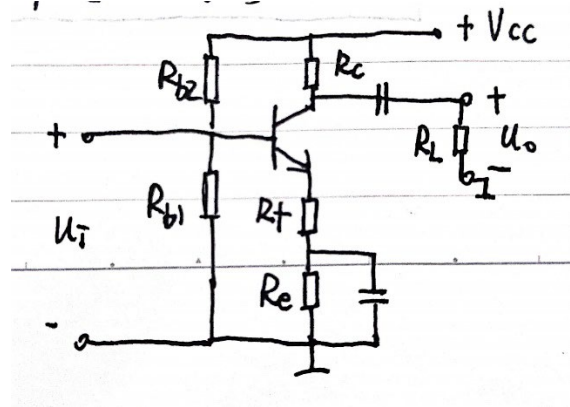 + Vcc
Rb2
Rc
+
+
RL
Uo
-
Rb1
Rf
Ui
Re
-